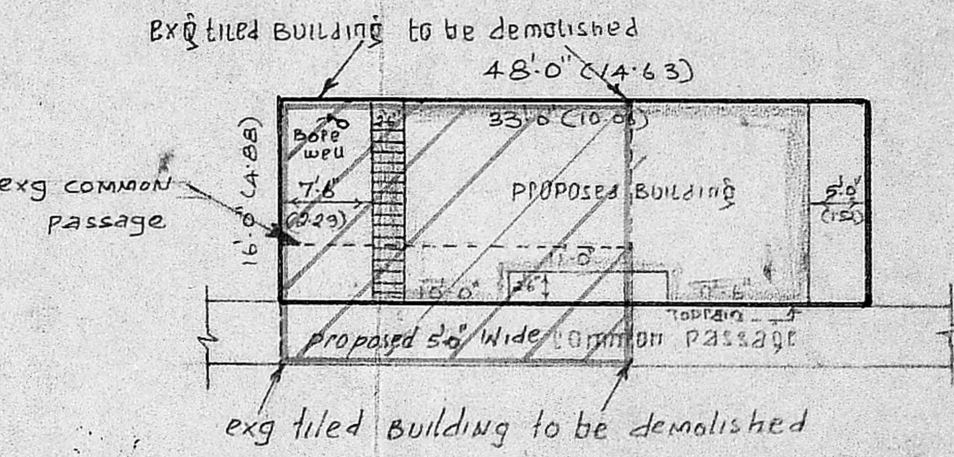 exg tiled Building to be demolished
48'-0" (14.63)
33'-0" (10.06)
Bore well
16'-0" (4.88)
exg common passage
7'-6" (2.29)
PROPOSED BUILDING
5'-0" (1.52)
11'-0"
15'-0"
2'6"
11'-6"
To DRAIN
proposed 5'-0" Wide common passage
exg tiled Building to be demolished